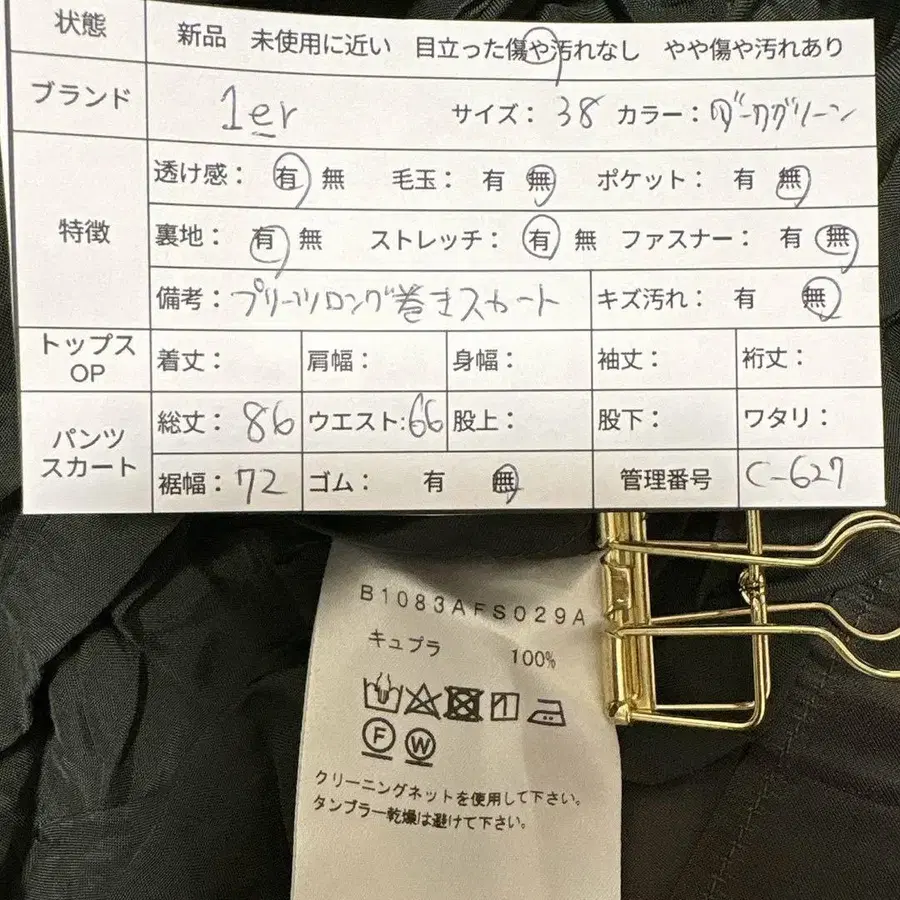 状態 新品 未使用に近い 目立った傷や汚れなし やや傷や汚れあり
ブランド 1er サイズ： 38 カラー： ダークグリーン
特徴
透け感： 有 無 毛玉： 有 無 ポケット： 有 無
裏地： 有 無 ストレッチ： 有 無 ファスナー： 有 無
備考： プリーツロング巻きスカート キズ汚れ： 有 無
トップス OP 着丈： 肩幅： 身幅： 袖丈： 裄丈：
パンツ スカート
総丈： 86 ウエスト: 66 股上： 股下： ワタリ：
裾幅： 72 ゴム： 有 無 管理番号 C-627
B1083AFS029A
キュプラ 100%
F W
クリーニングネットを使用して下さい。
タンブラー乾燥は避けて下さい。